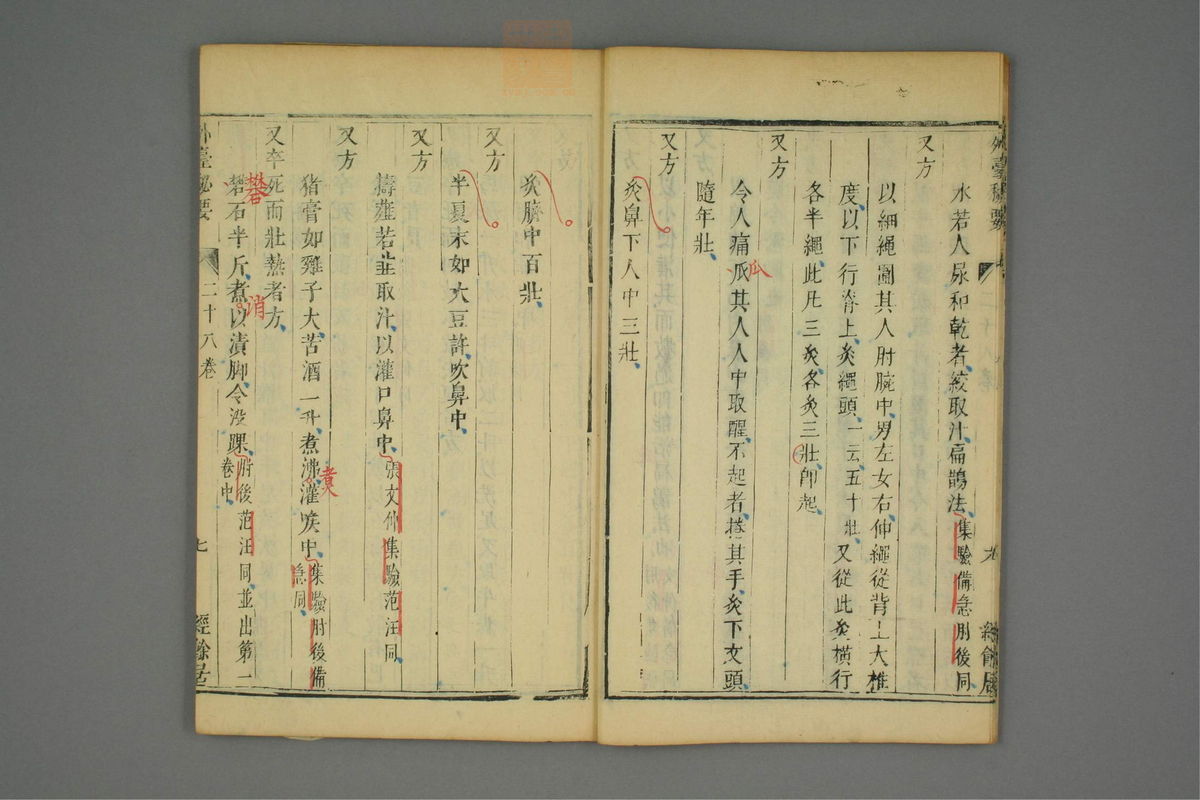 外臺秘要
水若人尿和乾者絞取汁扁鵲法集驗備急肘後同
又方
以細繩圍其人肘腕中男左女右伸繩從背上大椎
度以下行脊上灸繩頭一云五十壯又從此灸橫行
各半繩此凡三灸各灸三壯即起
又方
令人痛爪其人人中取醒不起者捲其手灸下文頭
隨年壯
又方
灸鼻下人中三壯
灸臍中百壯
又方
半夏末如大豆許吹鼻中
又方
擣薤若韭取汁以灌口鼻中張文仲集驗范汪同
又方
猪膏如雞子大苦酒一升煮沸灌喉中集驗肘後備
急同
又卒死而壯熱者方
礬石半斤煮以漬脚令沒踝肘後范汪同並出第一
卷中
外臺秘要
二十八卷
七
經餘居
瓜
煮
礬
消